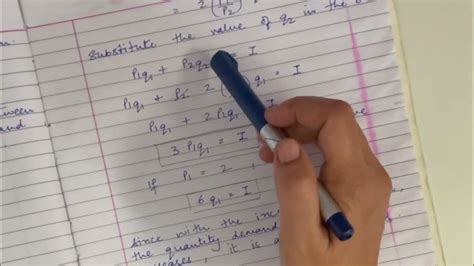 = 2 (P1/P2)
Substitute the value of q2 in the
P1q1 + P2q2 = I
P1q1 + P2 2 ( ) q1 = I
P1q1 + 2 P1q1 = I
3 P1q1 = I
If P1 = 2,
6 q1 = I
Since with the
the quantity demand
it is a